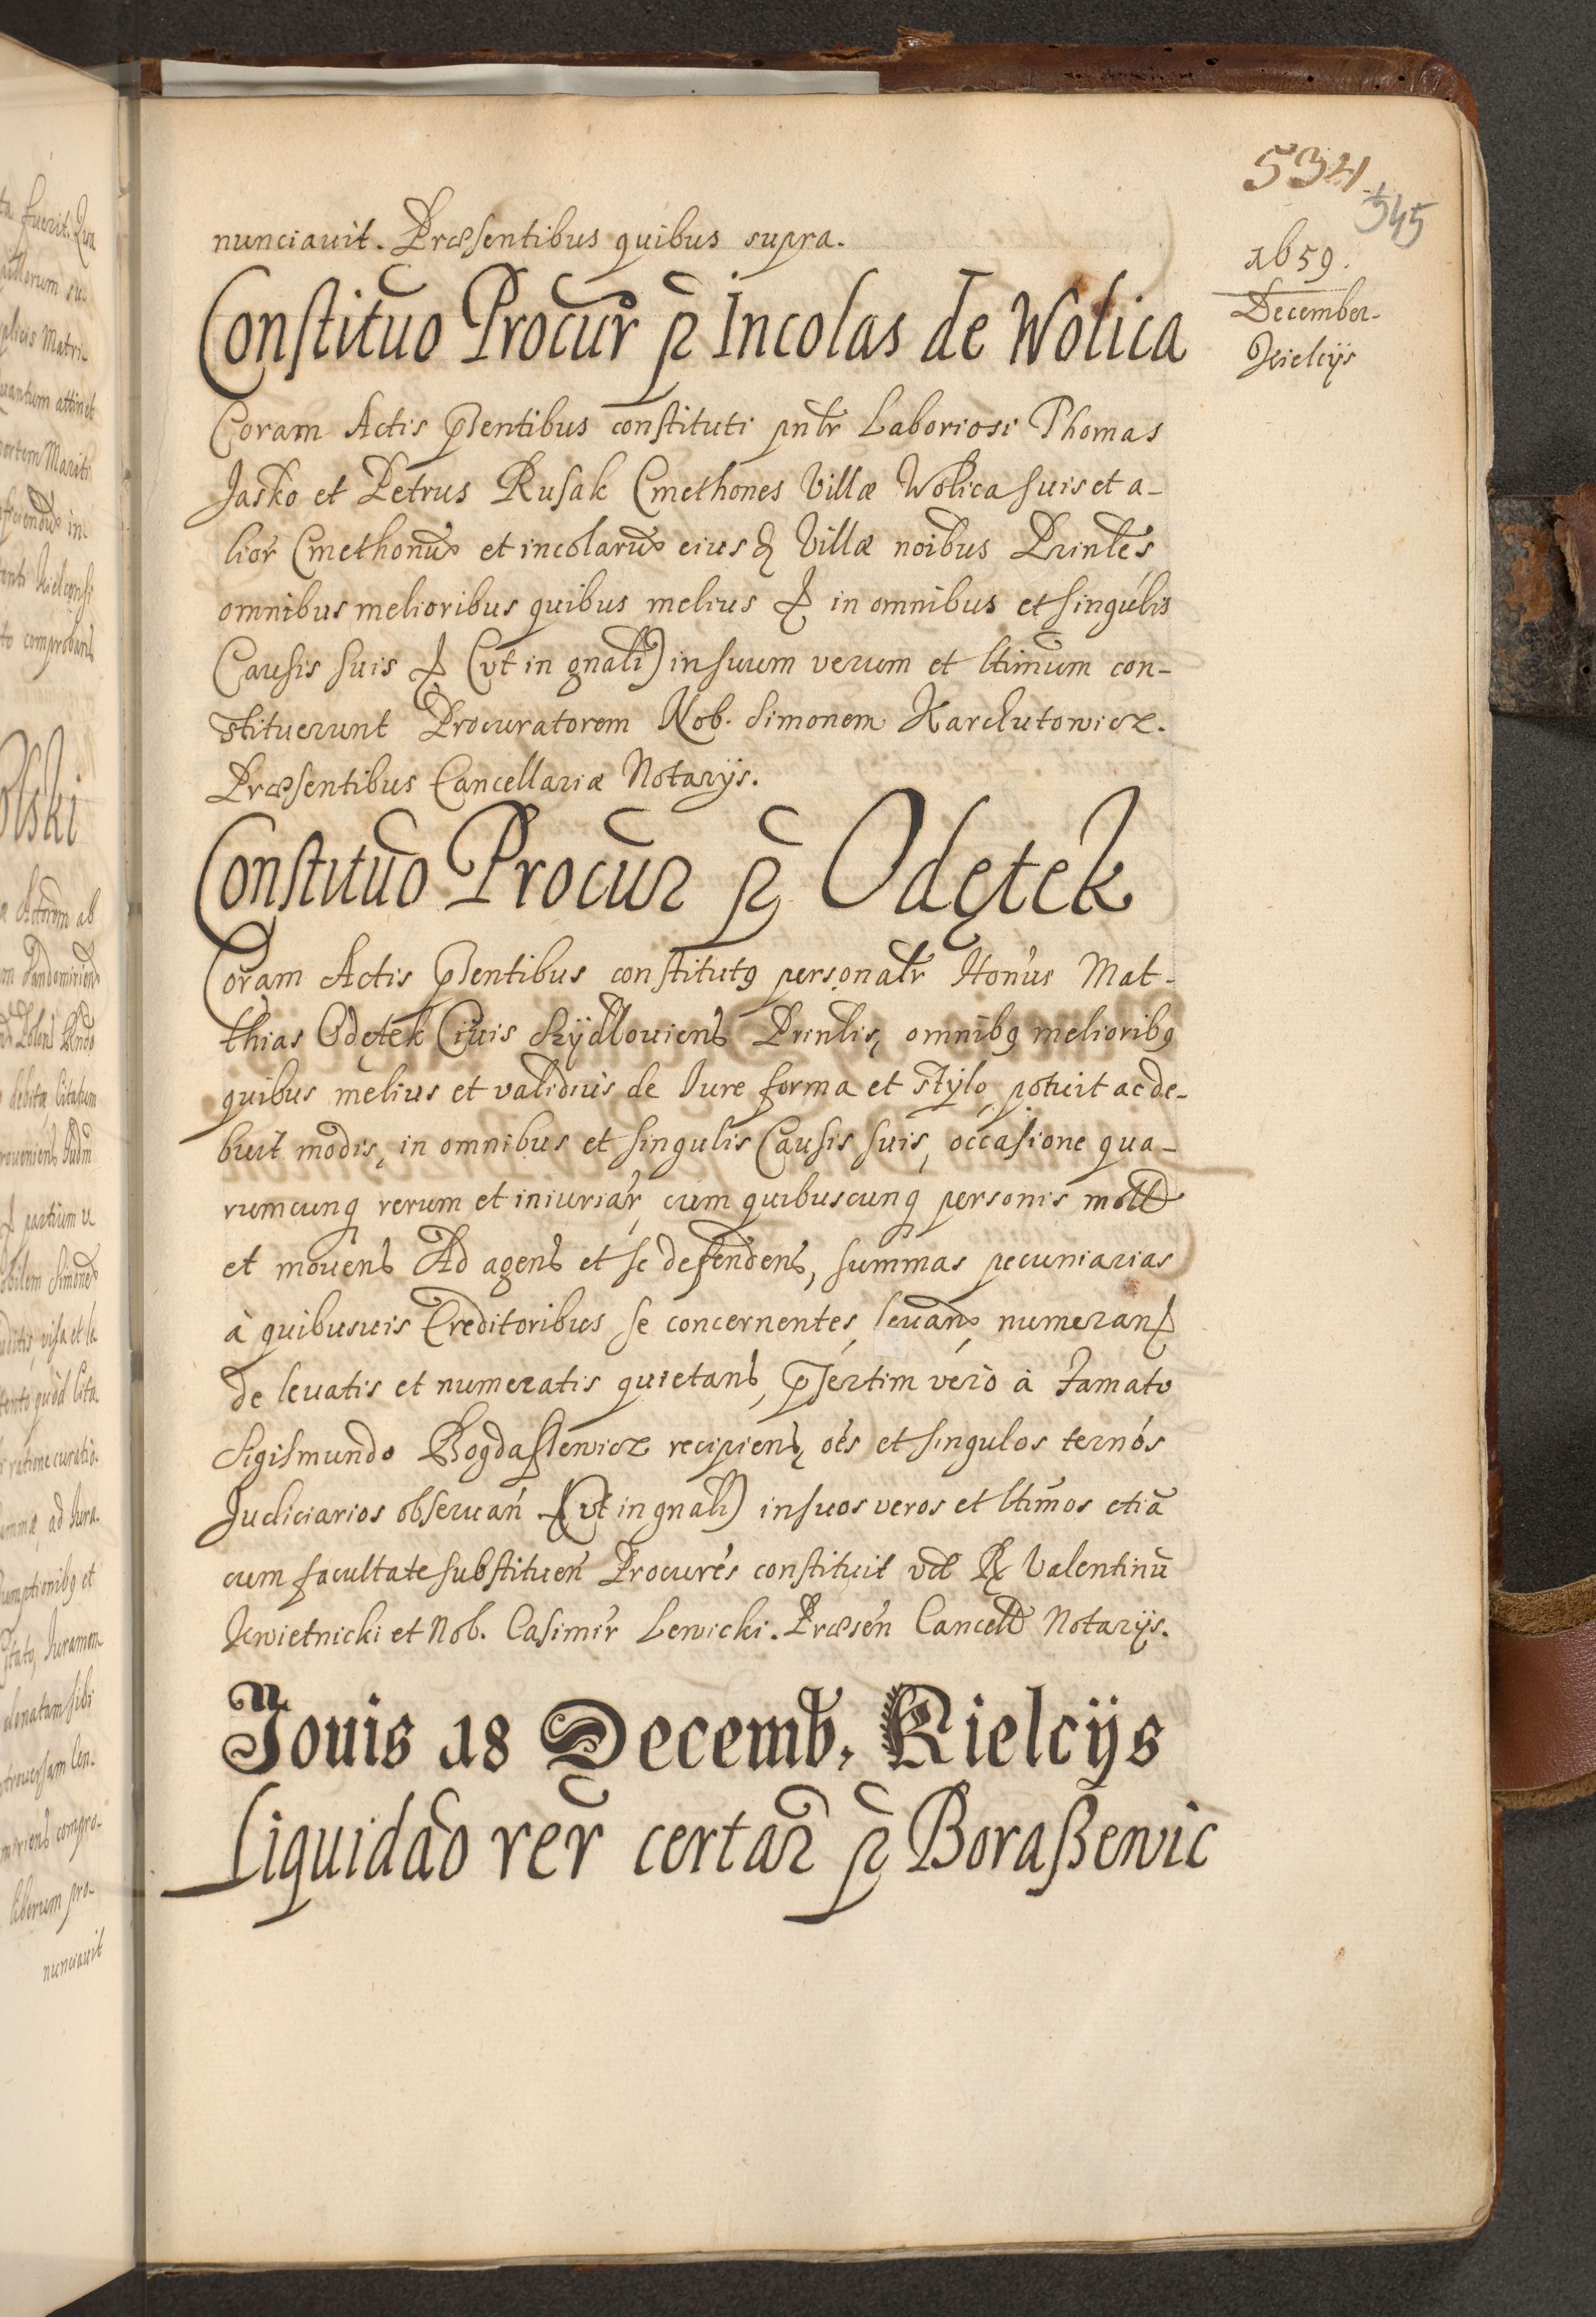 534
545
1659.
December.
Kielcijs
nunciauit. Præsentibus quibus supra.
Constituo Procur̃ p̃ Incolas de Wolica
Coram Actis p̃sentibus constituti pnlr̃ Laboriosi Thomas
Jasko et Petrus Rusak Cmethones Villæ Wolica suis et a-
lior̃ Cmethonũ et incolarũ eiusq̃ Villæ noibus Prinles
omnibus melioribus quibus melius & in omnibus et singulis
Causis suis & (vt in gnali) in suum verum et ltimum con-
stituerunt Procuratorem Nob. Simonem Karchutowicz.
Præsentibus Cancellariæ Notarijs.
Constituo Procur p̃ Odętek
Coram Actis p̃sentibus constitutq personalr̃ Honus Mat-
thias Odętek Ciuis Szÿdlouiens Prinlis, omnibq melioribq
quibus melius et validius de Iure forma et stÿlo potuit ac de-
buit modis, in omnibus et singulis Causis suis, occasione qua-
rumcunq rerum et iniuriar̃ cum quibuscunq personis mott
et mouens Ad agens et se defendens, summas pecuniarias
à quibusuis Creditoribus se concernentes, leuan numeran
de leuatis et numeratis quietans, p̃sertim verò à Famato
Sigismundo Bogdaszewicz recipiens, oes et singulos ternos
Judiciarios obseruan & (vt in gnali) in suos veros et ltimos etiã
cum facultate substituen Procures constituit vel R Valentinũ
Kwietnicki et Nob. Casimir̃ Lewicki. Præsen Cancell Notarijs.
Jouis 18 Decemb. Kielcijs
Liquidão rer̃ certar̃ p̃ Boraßewic